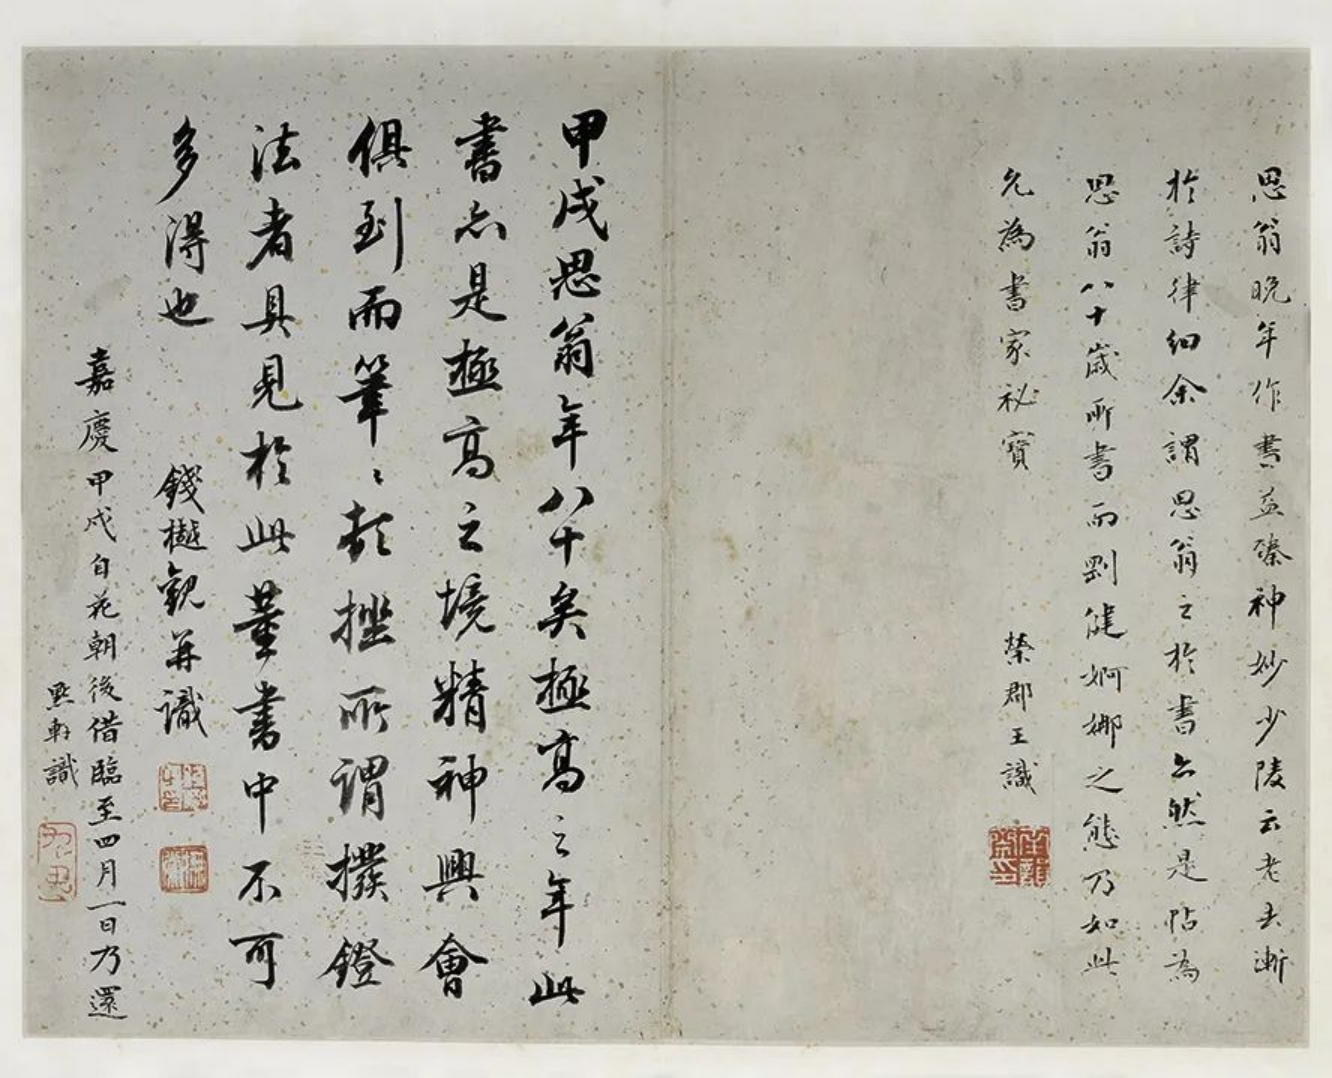 思翁晚年作書益臻神妙少陵云老去漸
於詩律細余謂思翁之於書亦然是帖為
思翁八十歲所書而劉健婀娜之態乃如此
允為書家祕寶
榮郡王識
甲戌思翁年八十矣極高之年此
書亦是極高之境精神興會
俱到而筆〻頓挫所謂撥鐙
法者具見於此董書中不可
多得也
錢樾觀并識
嘉慶甲戌自花朝後借臨至四月一日乃還
軒識